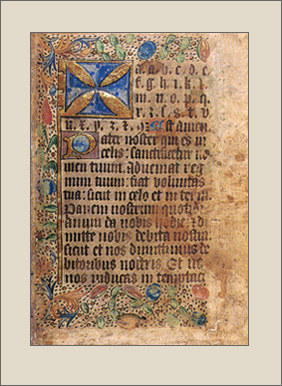 a. b. c. d. e.
g. h. i. k. l
m. n. o. p. q.
r. s. t. v
u. x. y. z. est amen
Pater noster qui es in
celis: sanctificetur no
men tuum. Adueniat reg
num tuum fiat voluntas
tua: sicut in celo et in terra
Panem nostrum quoti
anum da nobis hodie et di
mitte nobis debita nostra
sicut et nos dimittimus de
bitoribus nostris. Et ne
nos inducas in temptaci